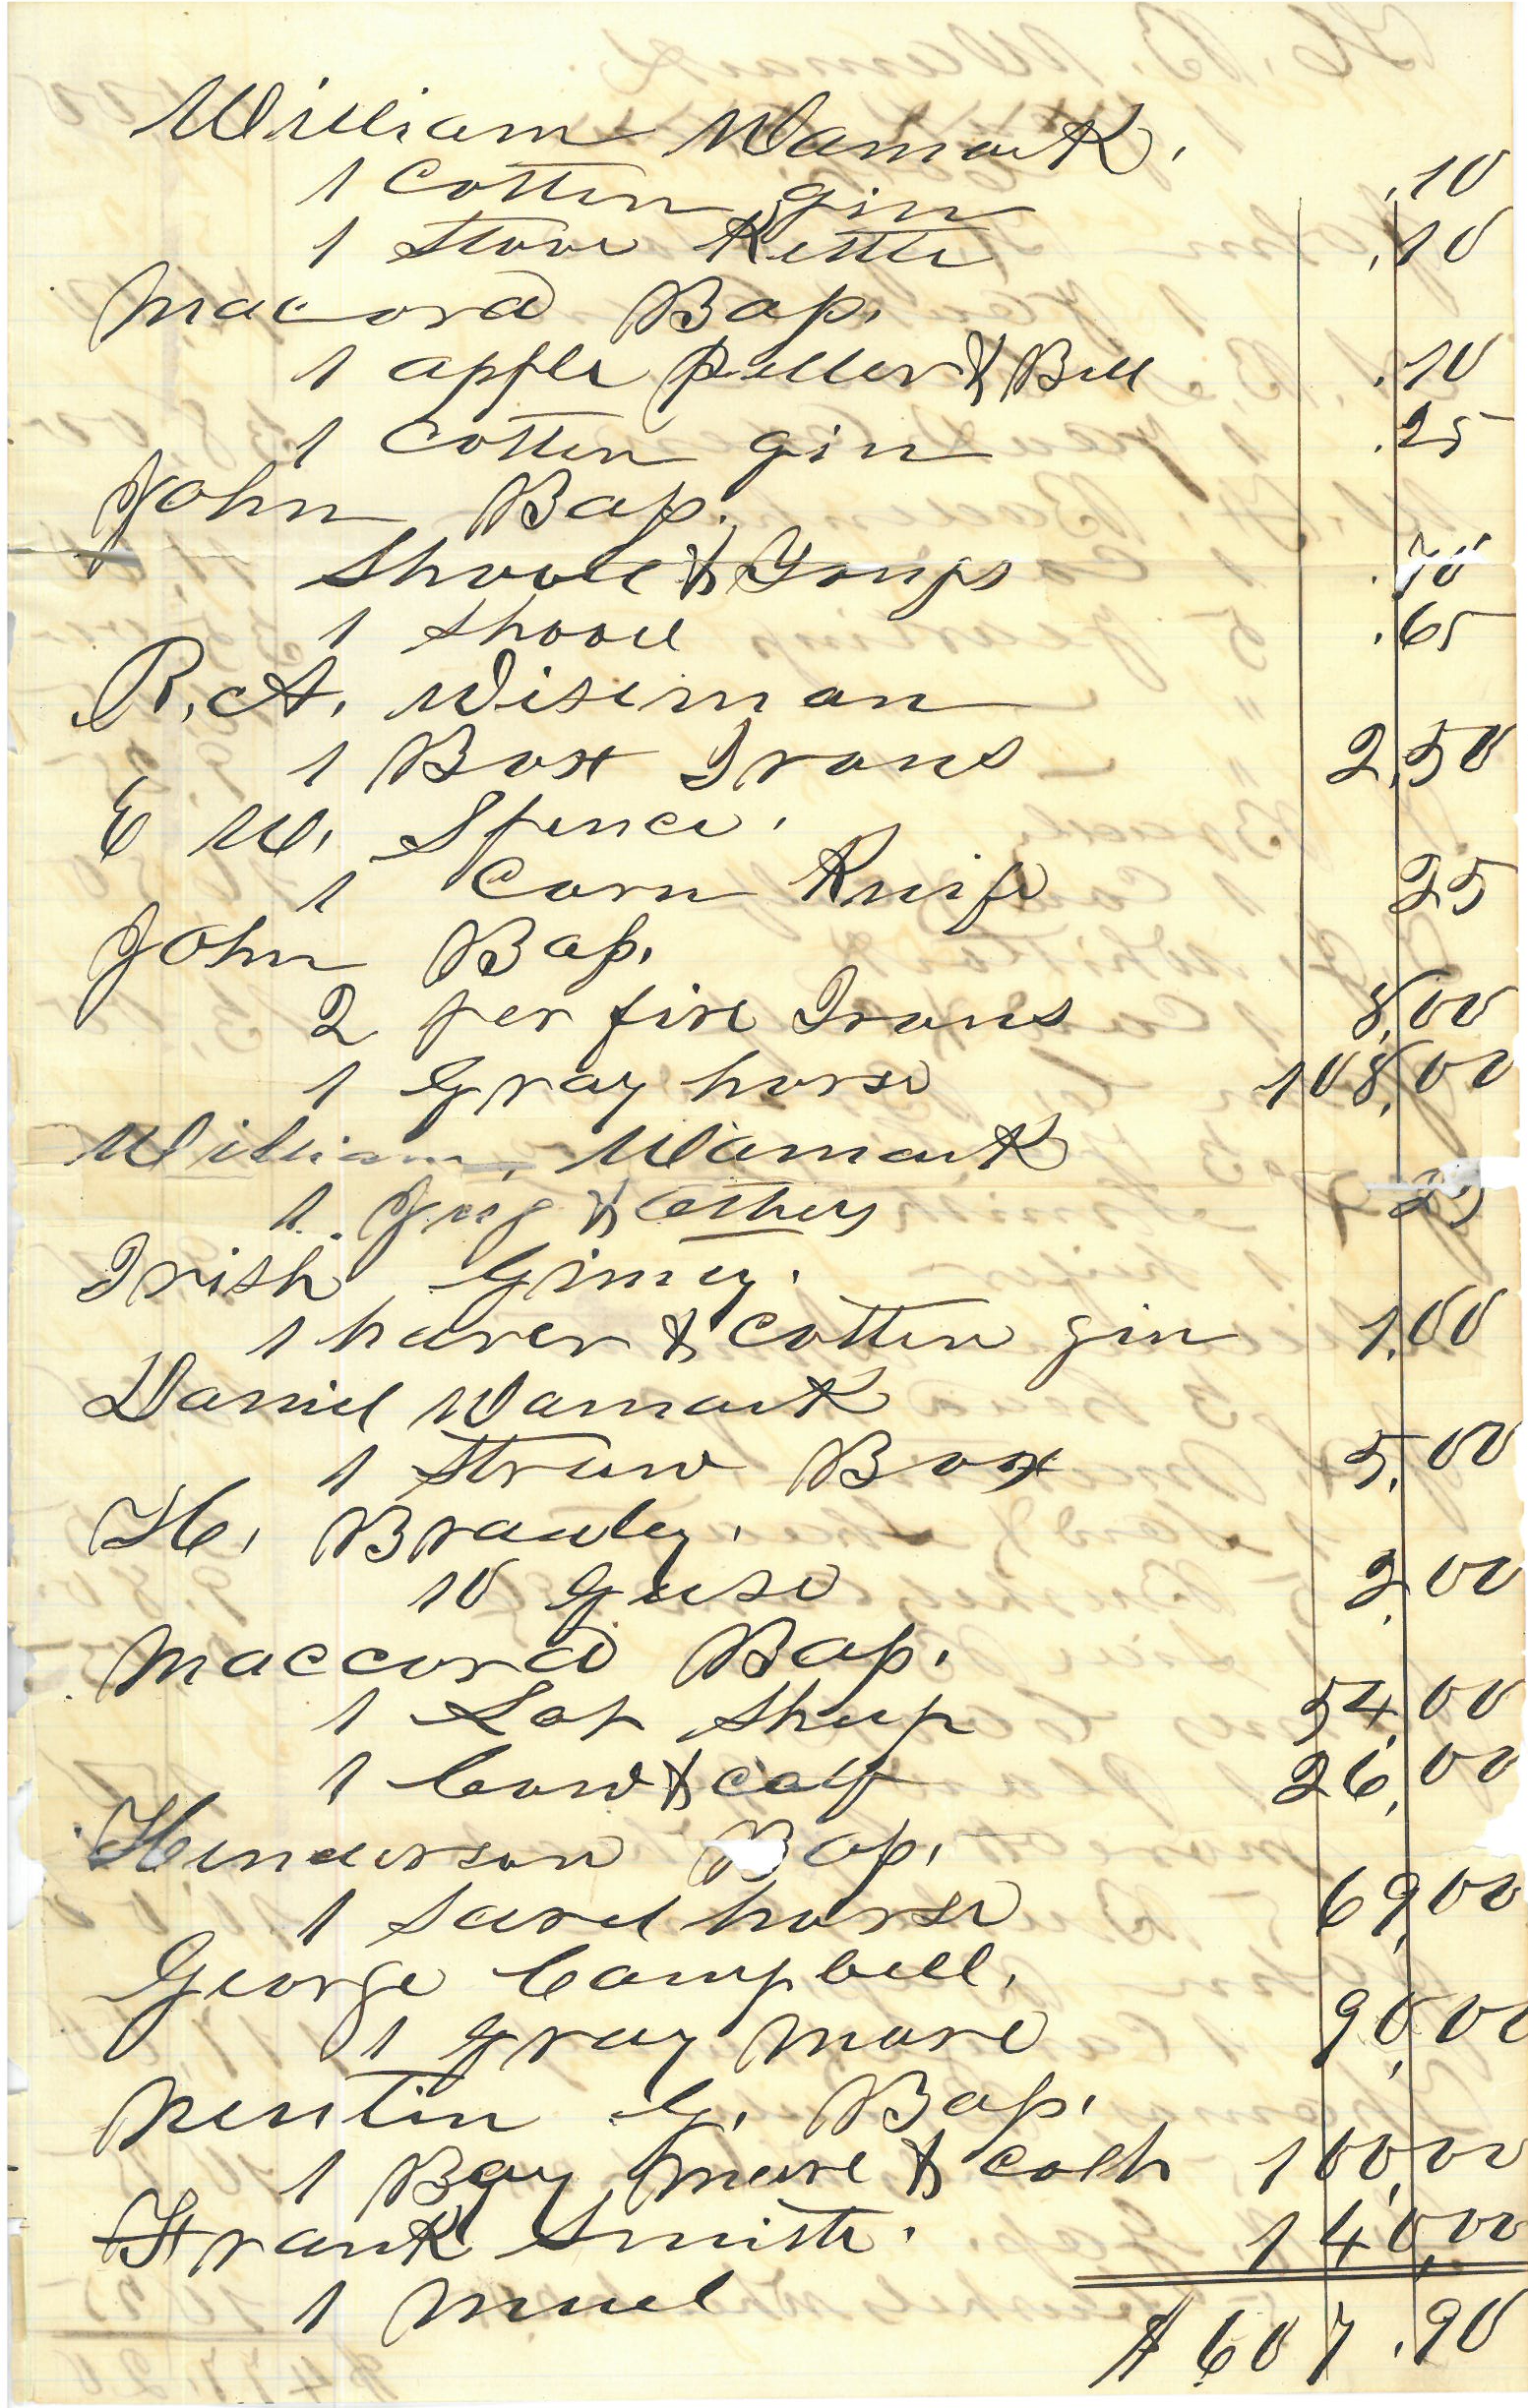 William Wamack.
1 Cotten gin .10
1 Stove Kettle .10
Maccord Bap.
1 apple peller & Bell .10
1 Cotten gin .25
John Bap.
Shovel & Tongs .70
1 Shovel .65
R. A. Wiseman
1 Box Irons 2.50
E W. Spence.
1 Corn Knife 25
John Bap.
2 per fire Irons 8,00
1 Gray horse 108,00
William Wamack
1 Jug & others 25
Irish Gimey.
1 harer & Cotten gin 1,00
Daniel Wamack
1 Straw Box 5,00
H. Brawley.
10 Geese 2,00
Maccord Bap.
1 Lot Sheep 54,00
1 Cow & calf 26,00
Henderson Bap.
1 Sarel horse 69,00
George Campbell.
1 Gray Mare 90,00
Newtin G. Bap.
1 Bay Mare & Colt 100,00
Frank Smith. 140,00
1 Muel
$607.90